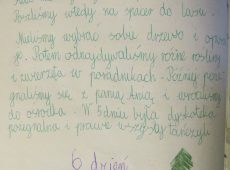 Poszliśmy wtedy na spacer do lasu.
Mieliśmy wybrać sobie drzewo i
Potem odnajdywaliśmy różne rośliny
i zwierzęta w poradnikach. Później
się z panią Anią i wróciliśmy
do ośrodka. W 5 dniu była dyskoteka
pożegnalna i prawie wszyscy tańczyli
6 dzień